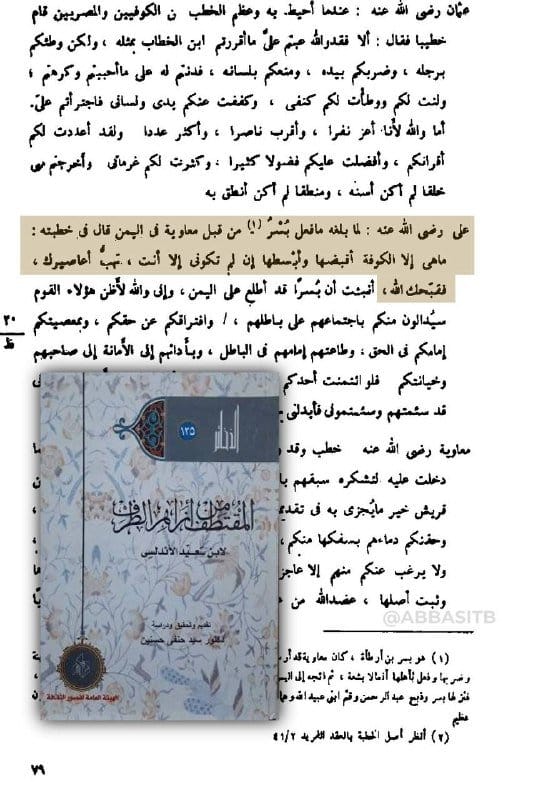 عثمان رضى الله عنه : عندما أحيط به وعظم الخطب من الكوفيين والمصريين قام
خطيبا فقال : ألا فقدوالله عبتم علىَّ ماأقررتم ابن الخطاب بمثله ، ولكن وطئكم
برجله ، وضربكم بيده ، ومنعكم بلسانه ، فدنتم له على ماأحببتم وكرهتم ؛
ولنت لكم ووطأت لكم كنفى ، وكففت عنكم يدى ولسانى فاجترأتم علىّ.
أما والله لأنا أعز نفرا ، وأقرب ناصرا ، وأكثر عددا ولقد أعددت لكم
أقرانكم ، وأفضلت عليكم فضولا كثيرا . وكثرت لكم غرماتى وأخرجتم منى
خلقا لم أكن أسنه ، ومنطقا لم أكن أنطق به
على رضى الله عنه : لما بلغه مافعل بُسْرٌ (١) من قبل معاوية فى اليمن قال فى خطبته :
ماهى إلا الكوفة أقبضها وأبسطها إن لم تكونى إلا أنت ، تهبُّ أعاصيرك ،
فقبّحك الله ، أنبئت أن بُسرًا قد أطلع على اليمن ، وإنى والله لأظن هؤلاء القوم
سيُدالون منكم باجتماعهم على باطلهم ، / وافتراقكم عن حقكم ، وبمعصيتكم
٢٠
ظ
إمامكم فى الحق ؛ وطاعتهم إمامهم فى الباطل ، وبأدائهم إلى الأمانة إلى صاحبهم
وخيانتكم فلو ائتمنت أحدكم
قد سئمتهم وسئمتمونى فأبدلنى
معاوية رضى الله عنه خطب وقد
دخلت عليه لتشكره سبقهم
قريش خير مايُجزى به فى تقديم
وحقنكم دماءهم بسفكها منكم،
ولا يرغب عنكم منهم إلا عاجز
وثبت أصلها ، عضدالله من
الذخائر
١٣٥
المقتطف من أزاهر الطرف
لابن سعيد الأندلسى
تقديم وتحقيق ودراسة
دكتور سيد حنفى حسنين
الهيئة العامة لقصور الثقافة
@ABBASITB
(١) هو بسر بن أرطأة ، كان معاوية قد
وضربها وفعل بأهلها أفعالا بشعة ، ثم اتجه إلى اليمن
بسر وذبح عبد الرحمن وقثم ابنى عبيد الله
عظيم
(٢) أنظر أصل الخطبة بالعقد الفريد ٤١/٢
٧٩